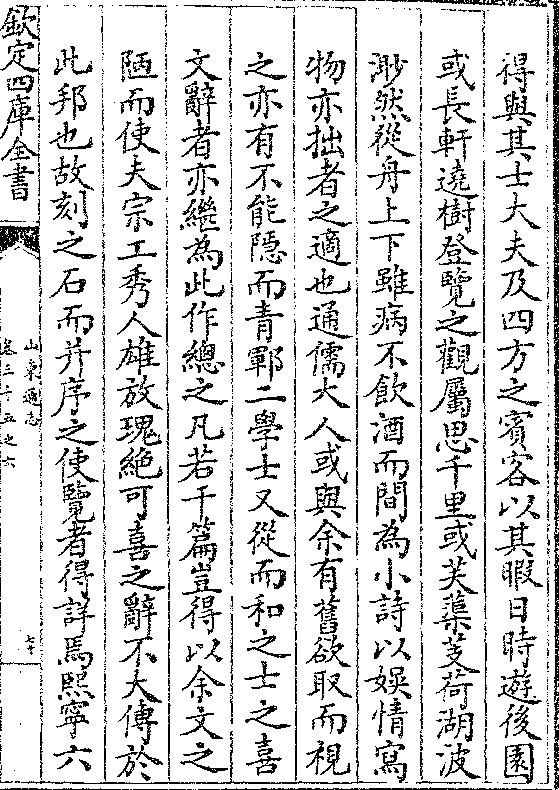 得與其士大夫及四方之賓客以其暇日時遊後園
或長軒遶樹登覽之觀屬思千里或芙蕖芰荷湖波
渺然從舟上下雖病不飲酒而間為小詩以娛情寫
物亦拙者之適也通儒大人或與余有舊欲取而視
之亦有不能隱而青鄆二學士又從而和之士之喜
文辭者亦繼為此作總之凡若干篇豈得以余文之
陋而使夫宗工秀人雄放瑰絶可喜之辭不大傳於
此邦也故刻之石而并序之使覽者得詳焉熙寧六
欽定四庫全書
山東通志
卷三十五之六
七十